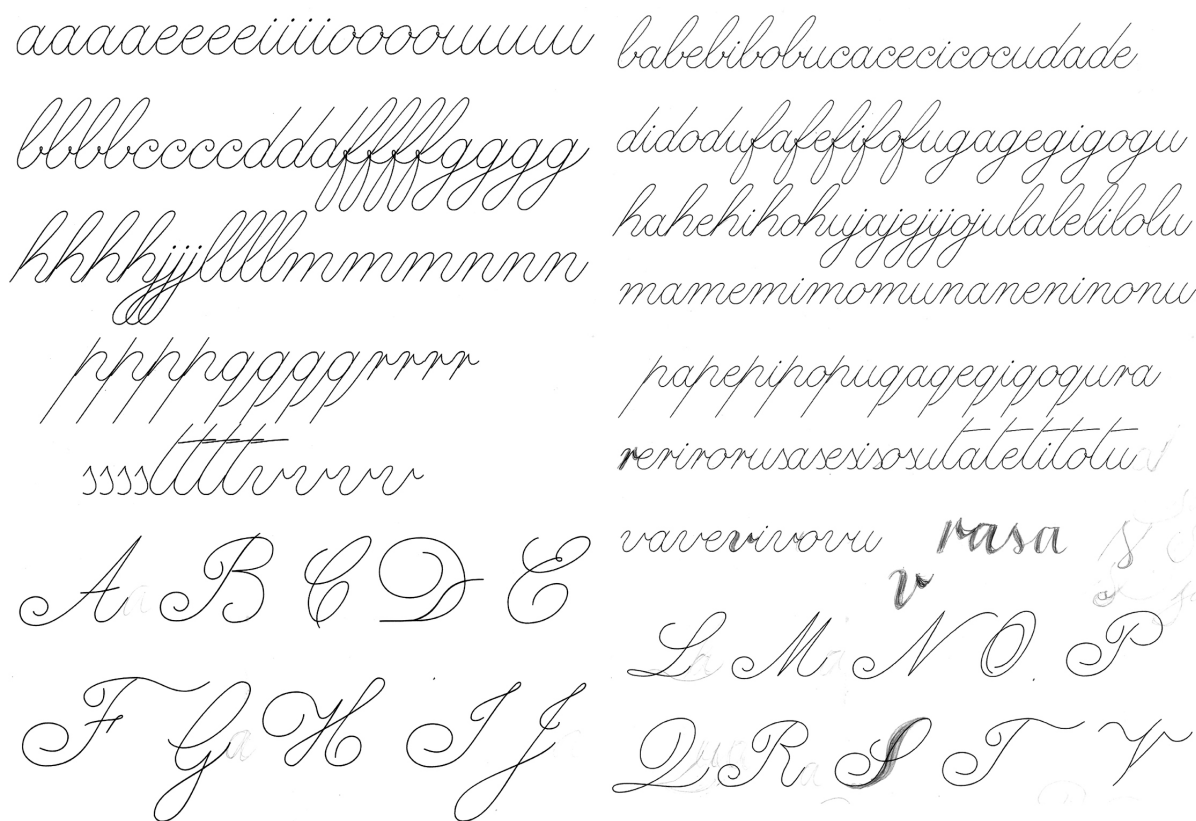 aaaaeeeeiiiioooouuuu
bbbbccccdddffffgggg
hhhhjjjllllmmmnnn
ppppqqqqrrrr
ssssttttvvvv
A B C D E
F G H I J
babebibobucacecicocudade
didodufafefifofugagegigogu
hahehihohujajejijojulalelilolu
mamemimomunaneninonu
papepipopuqaqeqiqoqura
rerirorusasesisosutatetitotu
vavevivovu rasa S
v
L M N O P
Q R S T V